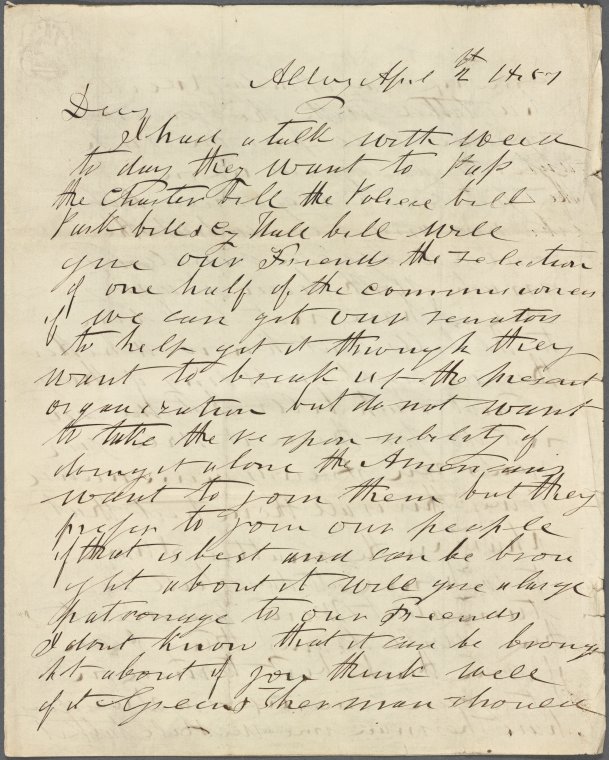 Albany April 2 1857
Dear
I had a talk with Weed
to day they want to pass
the Charter bill the Police bill
Park bill & Cy Hall bill will
give our Friends the selection
of one half of the commissioners
if we can get our senators
to help get it through they
want to break up the present
organization but do not want
to take the responsibility of
doing it alone the Americans
want to join them but they
prefer to join our people
if that is best and can be brou
ght about it will give a large
patronage to our Friends
I dont know that it can be broug
ht about if you think well
of it Green & Sherman should